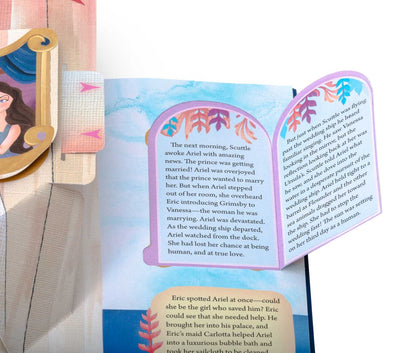 The next morning, Scuttle
awoke Ariel with amazing
news. The prince was getting
married! Ariel was overjoyed
that the prince wanted to marry
her. But when Ariel stepped
out of her room, she overheard
Eric introducing Grimsby to
Vanessa—the woman he was
marrying. Ariel was devastated.
As the wedding ship departed,
Ariel watched from the dock.
She had lost her chance at being
human, and at true love.
But just when Scuttle was flying
past the wedding ship, he heard
familiar singing. He saw Vanessa
looking in the mirror, but her
reflection
Ursula's! Scuttle told Ariel what
he saw, and she dove into the
water in a desperate
wedding ship. Ariel held tight to a
barrel as Flounder and the other
sea animals dragged her toward
the ship. She had to stop the
wedding fast! The sun was setting
on her third day as a human.
Eric spotted Ariel at once—could
she be the girl who saved him? Eric
could see that she needed help. He
brought her into his palace, and
Eric's maid Carlotta helped Ariel
into a luxurious bubble bath and
took her sailcloth to be cleaned.